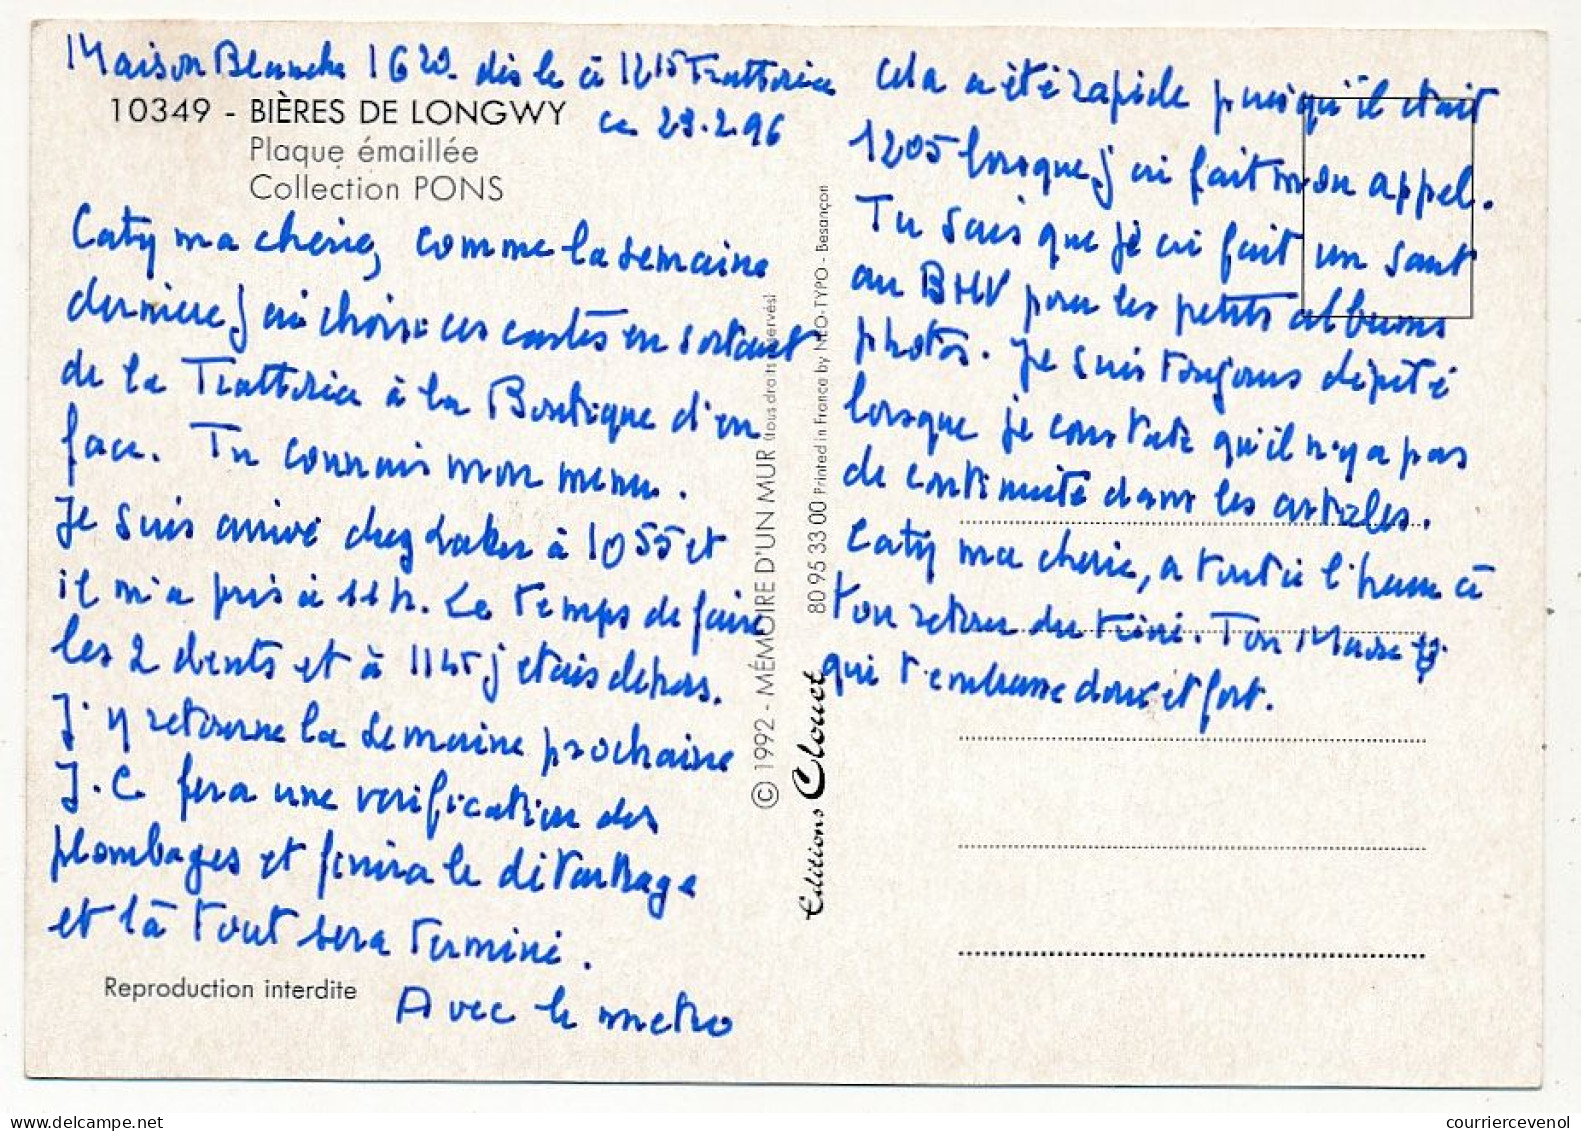 Maison Blanche 16 20. dès le à 12 15 Trattoria
ce 23.2.96
10349 - BIÈRES DE LONGWY
Plaque émaillée
Collection PONS
Caty ma cherie, comme la semaine
derniere j'ai choisi ces cartes en sortant
de la Trattoria à la Boutique d'en
face. Tu connais mon menu.
Je suis arrivé chez à 10 55 et
il m'a pris à 11h. Le temps de faire
les 2 dents et à 11 45 j'etais dehors.
J'y retourne la semaine prochaine
J.C fera une verification des
plombages et finira le détartrage
et là tout sera terminé.
Avec le metro
Reproduction interdite
© 1992 - MÉMOIRE D'UN MUR (Tous droits réservés)
Editions Clouet 80 95 33 00 Printed in France by NÉO-TYPO - Besançon
Cela a été rapide puisqu'il etait
1205 lorsque j'ai fait mon appel.
Tu sais que j'ai fait un saut
au BHV pour les petits albums
photos. Je suis toujours dépité
lorsque je constate qu'il n'y a pas
de continuité dans les articles.
Caty ma cherie, a tout à l'heure à
ton retour du ciné. Ton
qui t'embrasse doux et fort.
courriercevenol